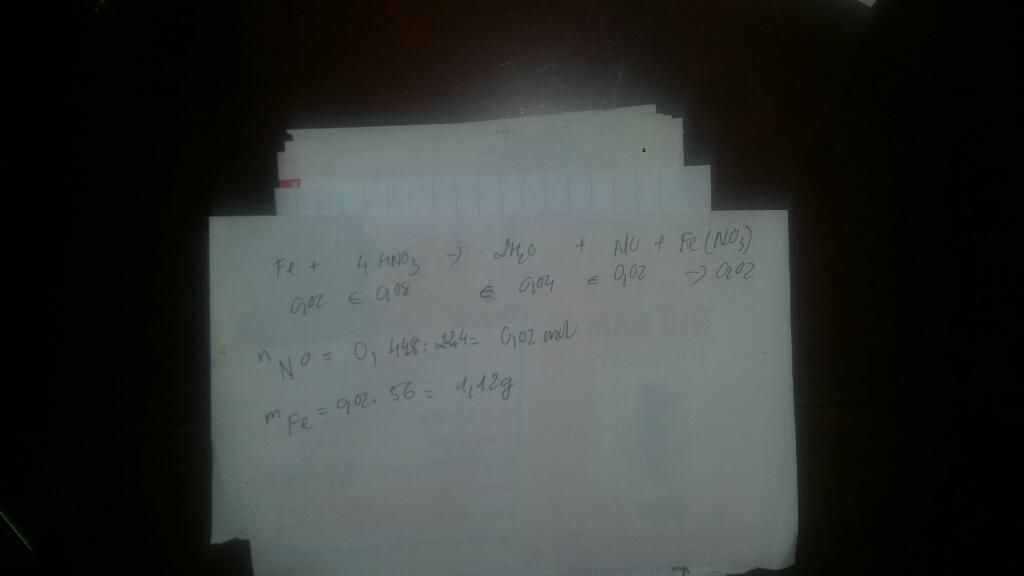 Fe + 4 HNO3 → 2H2O + NO + Fe(NO3)
0,02 ← 0,08 ← 0,04 ← 0,02 → 0,02
nNO = 0,448 : 22,4 = 0,02 mol
mFe = 0,02 . 56 = 1,12g